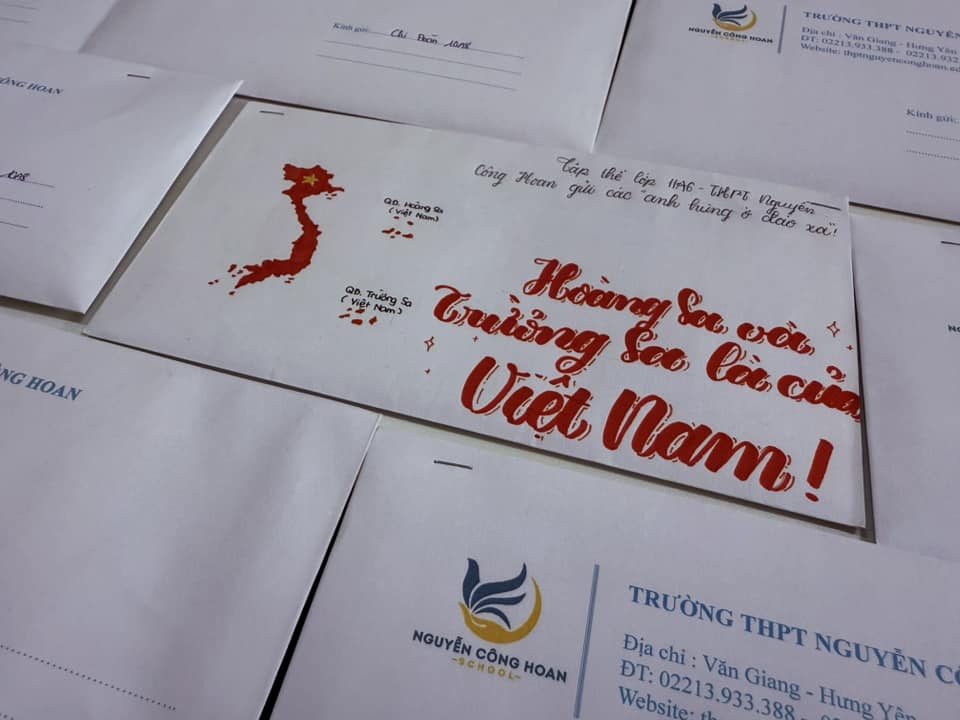 Kính gửi:
Chi Đoàn 10A8
NGUYỄN CÔNG HOAN
SCHOOL
TRƯỜNG THPT NGUYỄN
Địa chỉ : Văn Giang - Hưng Yên
ĐT: 02213.933.388 - 02213.932
Website: thptnguyenconghoan.ed
Kính gửi:
CÔNG HOAN
10A8
Tập thể lớp 11A6 - THPT Nguyễn
Công Hoan gửi các "anh hùng ở đảo xa"!
QĐ. Hoàng Sa
(Việt Nam)
QĐ. Trường Sa
(Việt Nam)
Hoàng Sa và
Trường Sa là của
Việt Nam!
NG HOAN
NGUYỄN CÔNG HOAN
-SCHOOL-
TRƯỜNG THPT NGUYỄN CÔ
Địa chỉ : Văn Giang - Hưng Yên
ĐT: 02213.933.388 -
Website: th